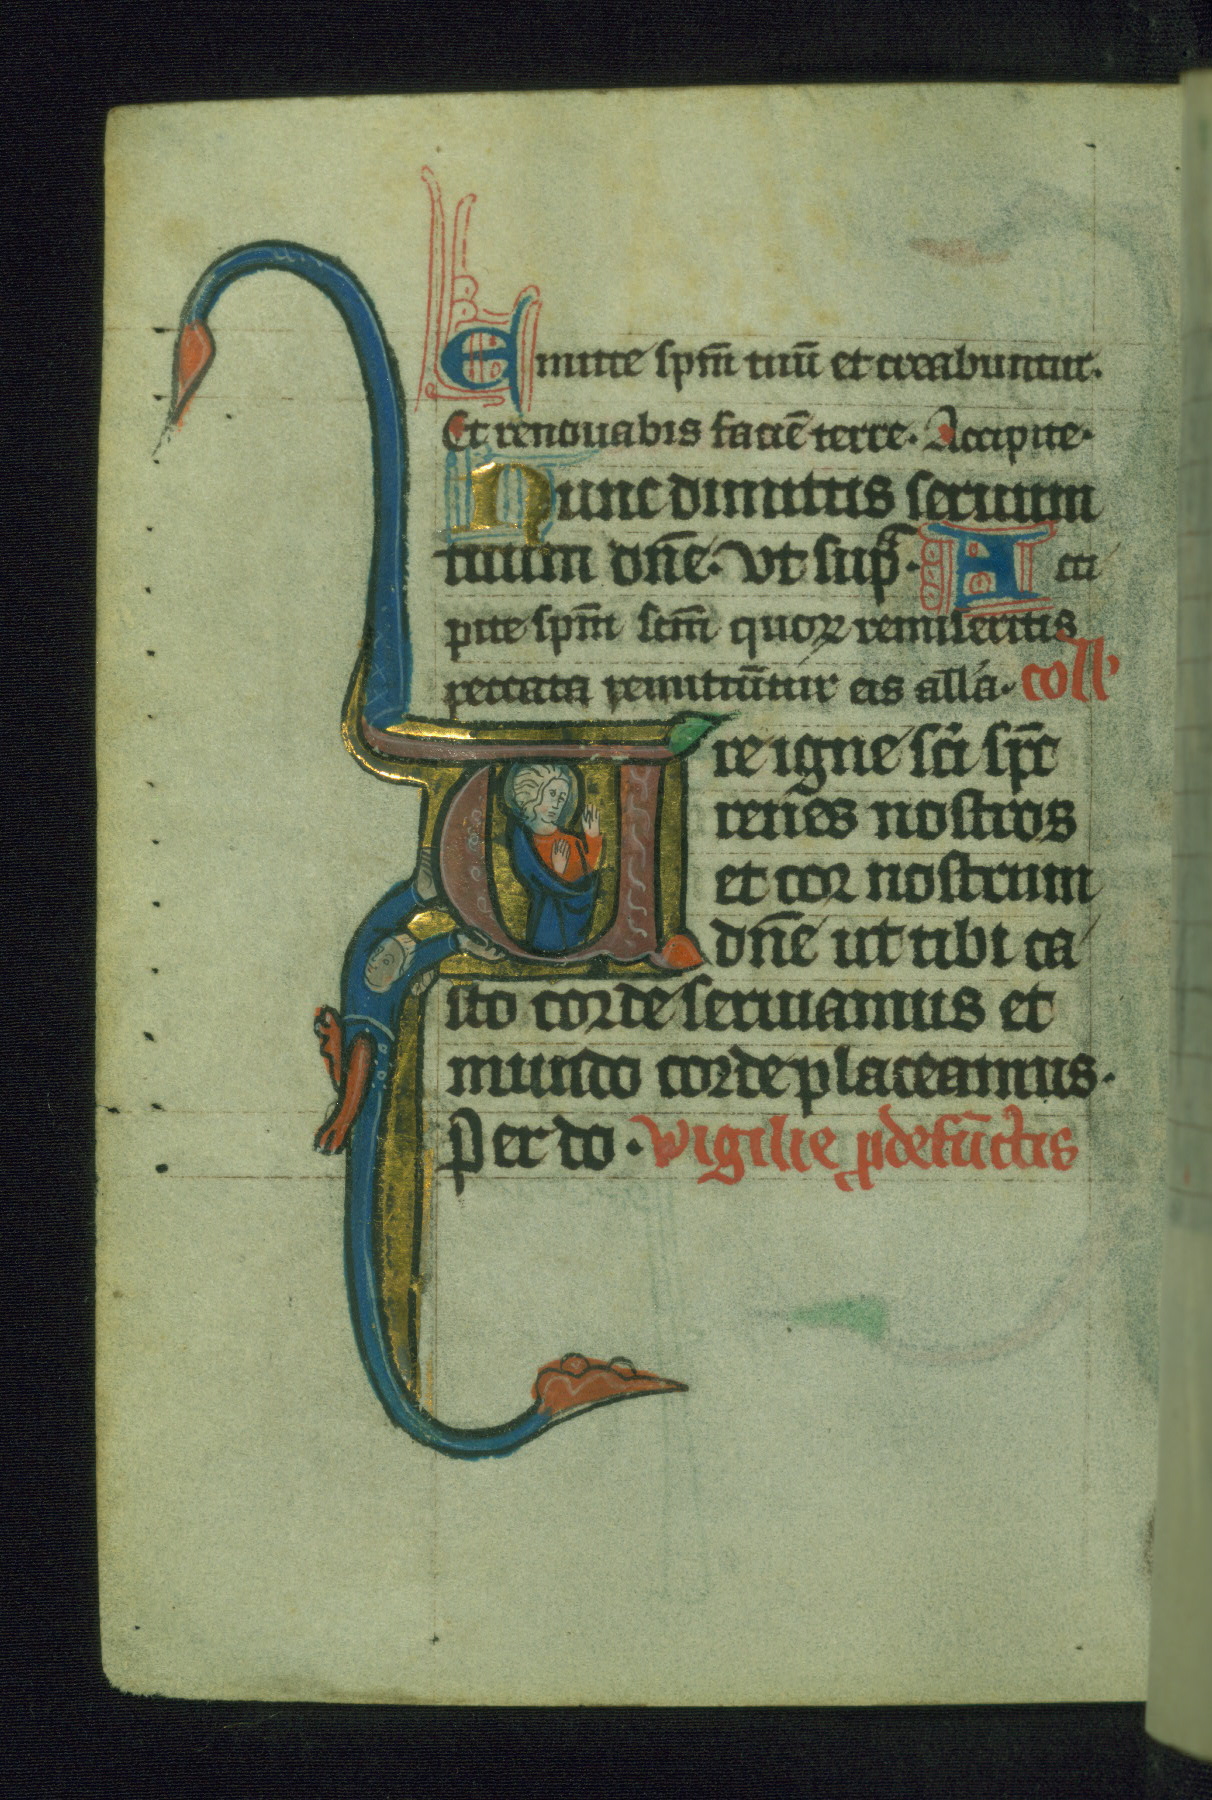 Emitte spm̄ tuū et creabuntur.
Et renouabis faciē terre. Accipite.
Nunc dimittis seruum
tuum dn̄e. Vt sup̄. Acci
pite spm̄ scm̄ quoꝝ remiseritis
peccata remittūtur eis all'a. coll'
Ure igne sc̄i sp̄c
renes nostros
et cor nostrum
dn̄e ut tibi ca
sto corde seruiamus et
mundo corde placeamus.
Per do. Vigilie ꝓ defūctis